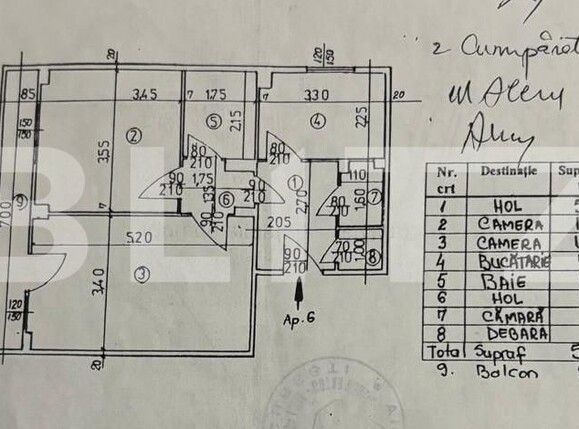 2 Cumpărat
120
150
20
85
3,45
7
1,75
7
3,30
20
②
⑤
④
2,15
2,25
150
150
3,55
80
210
80
210
90
210
1,75
1,35
90
210
①
2,70
110
⑦
1,60
80
210
⑨
700
7
⑥
90
210
2,05
5,20
70
210
1,00
⑧
90
210
③
3,40
120
150
20
Ap. 6
BLITZ
Nr. crt Destinație Sup
1 HOL
2 CAMERA
3 CAMERA
4 BUCĂTARIE
5 BAIE
6 HOL
7 CĂMARĂ
8 DEBARA
Total Supraf 5
9. Balcon